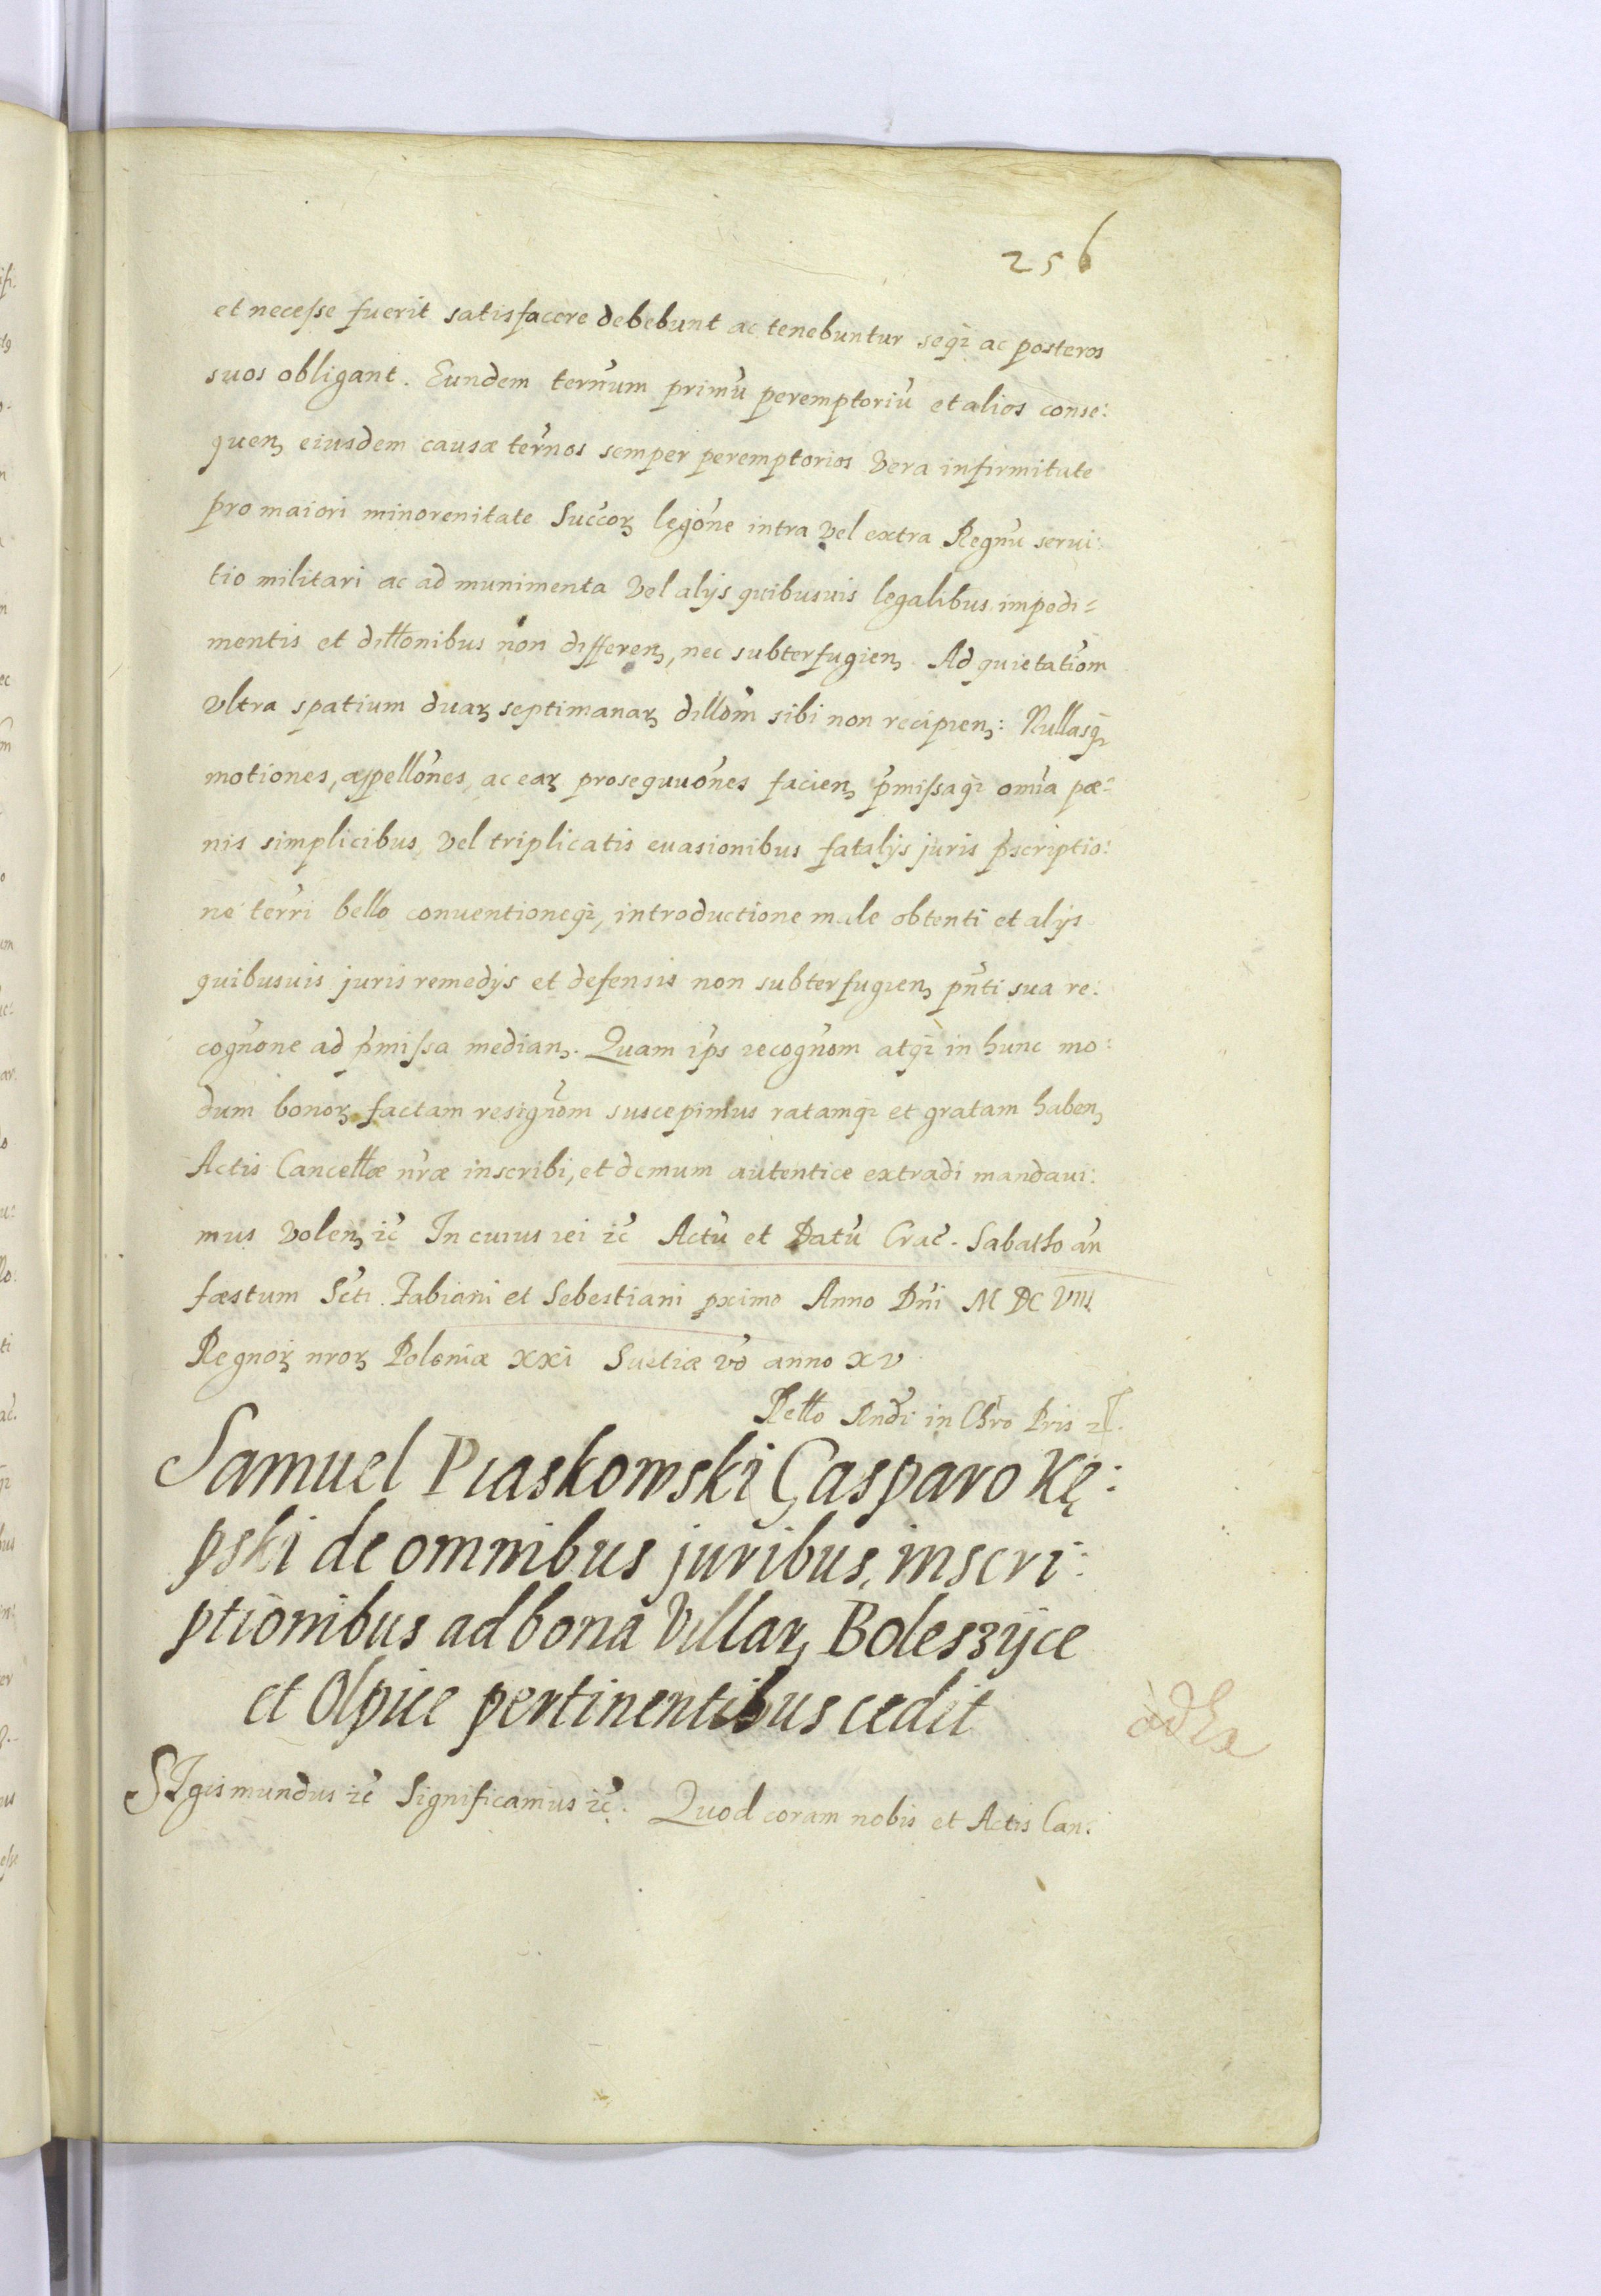 256
et necesse fuerit satisfacere debebunt ac tenebuntur seqȝ ac posteros
suos obligant. Eundem ternum primu peremptoriu et alios conse:
quenȝ eiusdem causæ ternos semper peremptorios vera infirmitate
pro maiori minorenitate Succorȝ legone intra vel extra Regnu serui:
tio militari ac ad munimenta vel alijs quibusuis legalibus impedi=
mentis et dillonibus non differenȝ, nec subterfugienȝ. Ad quietatiom
vltra spatium duarȝ septimanarȝ dillom sibi non recipienȝ: Nullasqȝ
motiones, appellones, ac earȝ prosequuones facienȝ pmissaqȝ omia pæ:
nis simplicibus vel triplicatis euasionibus fatalijs juris pscriptio:
ne terri bello conuentioneqȝ, introductione male obtenti et alijs
quibusuis juris remedijs et defensis non subterfugienȝ pnti sua re:
cognone ad pmissa medianȝ. Quam ips recognom atqȝ in hunc mo:
dum bonorȝ factam resignom suscepimus ratamqȝ et gratam habenȝ
Actis Cancellæ nræ inscribi, et demum autentice extradi mandaui:
mus volenȝ ꝛc In cuius rei ꝛc Actu et Datu Crac. Sabatho an
fæstum Scti Fabiani et Sebestiani pximo Anno Dni M DC VIII
Regnorȝ nrorȝ Poloniæ XXI Suetiæ vo anno XV
Rello Rndi in Chro Pris ꝛc.
Samuel Piaskowski Gasparo Kę:
pski de omnibus juribus, inscri:
ptionibus ad bona Villarȝ Boleszÿce
et Olpice pertinentibus cedit
SIgismundus ꝛc Significamus ꝛc. Quod coram nobis et Actis Can: